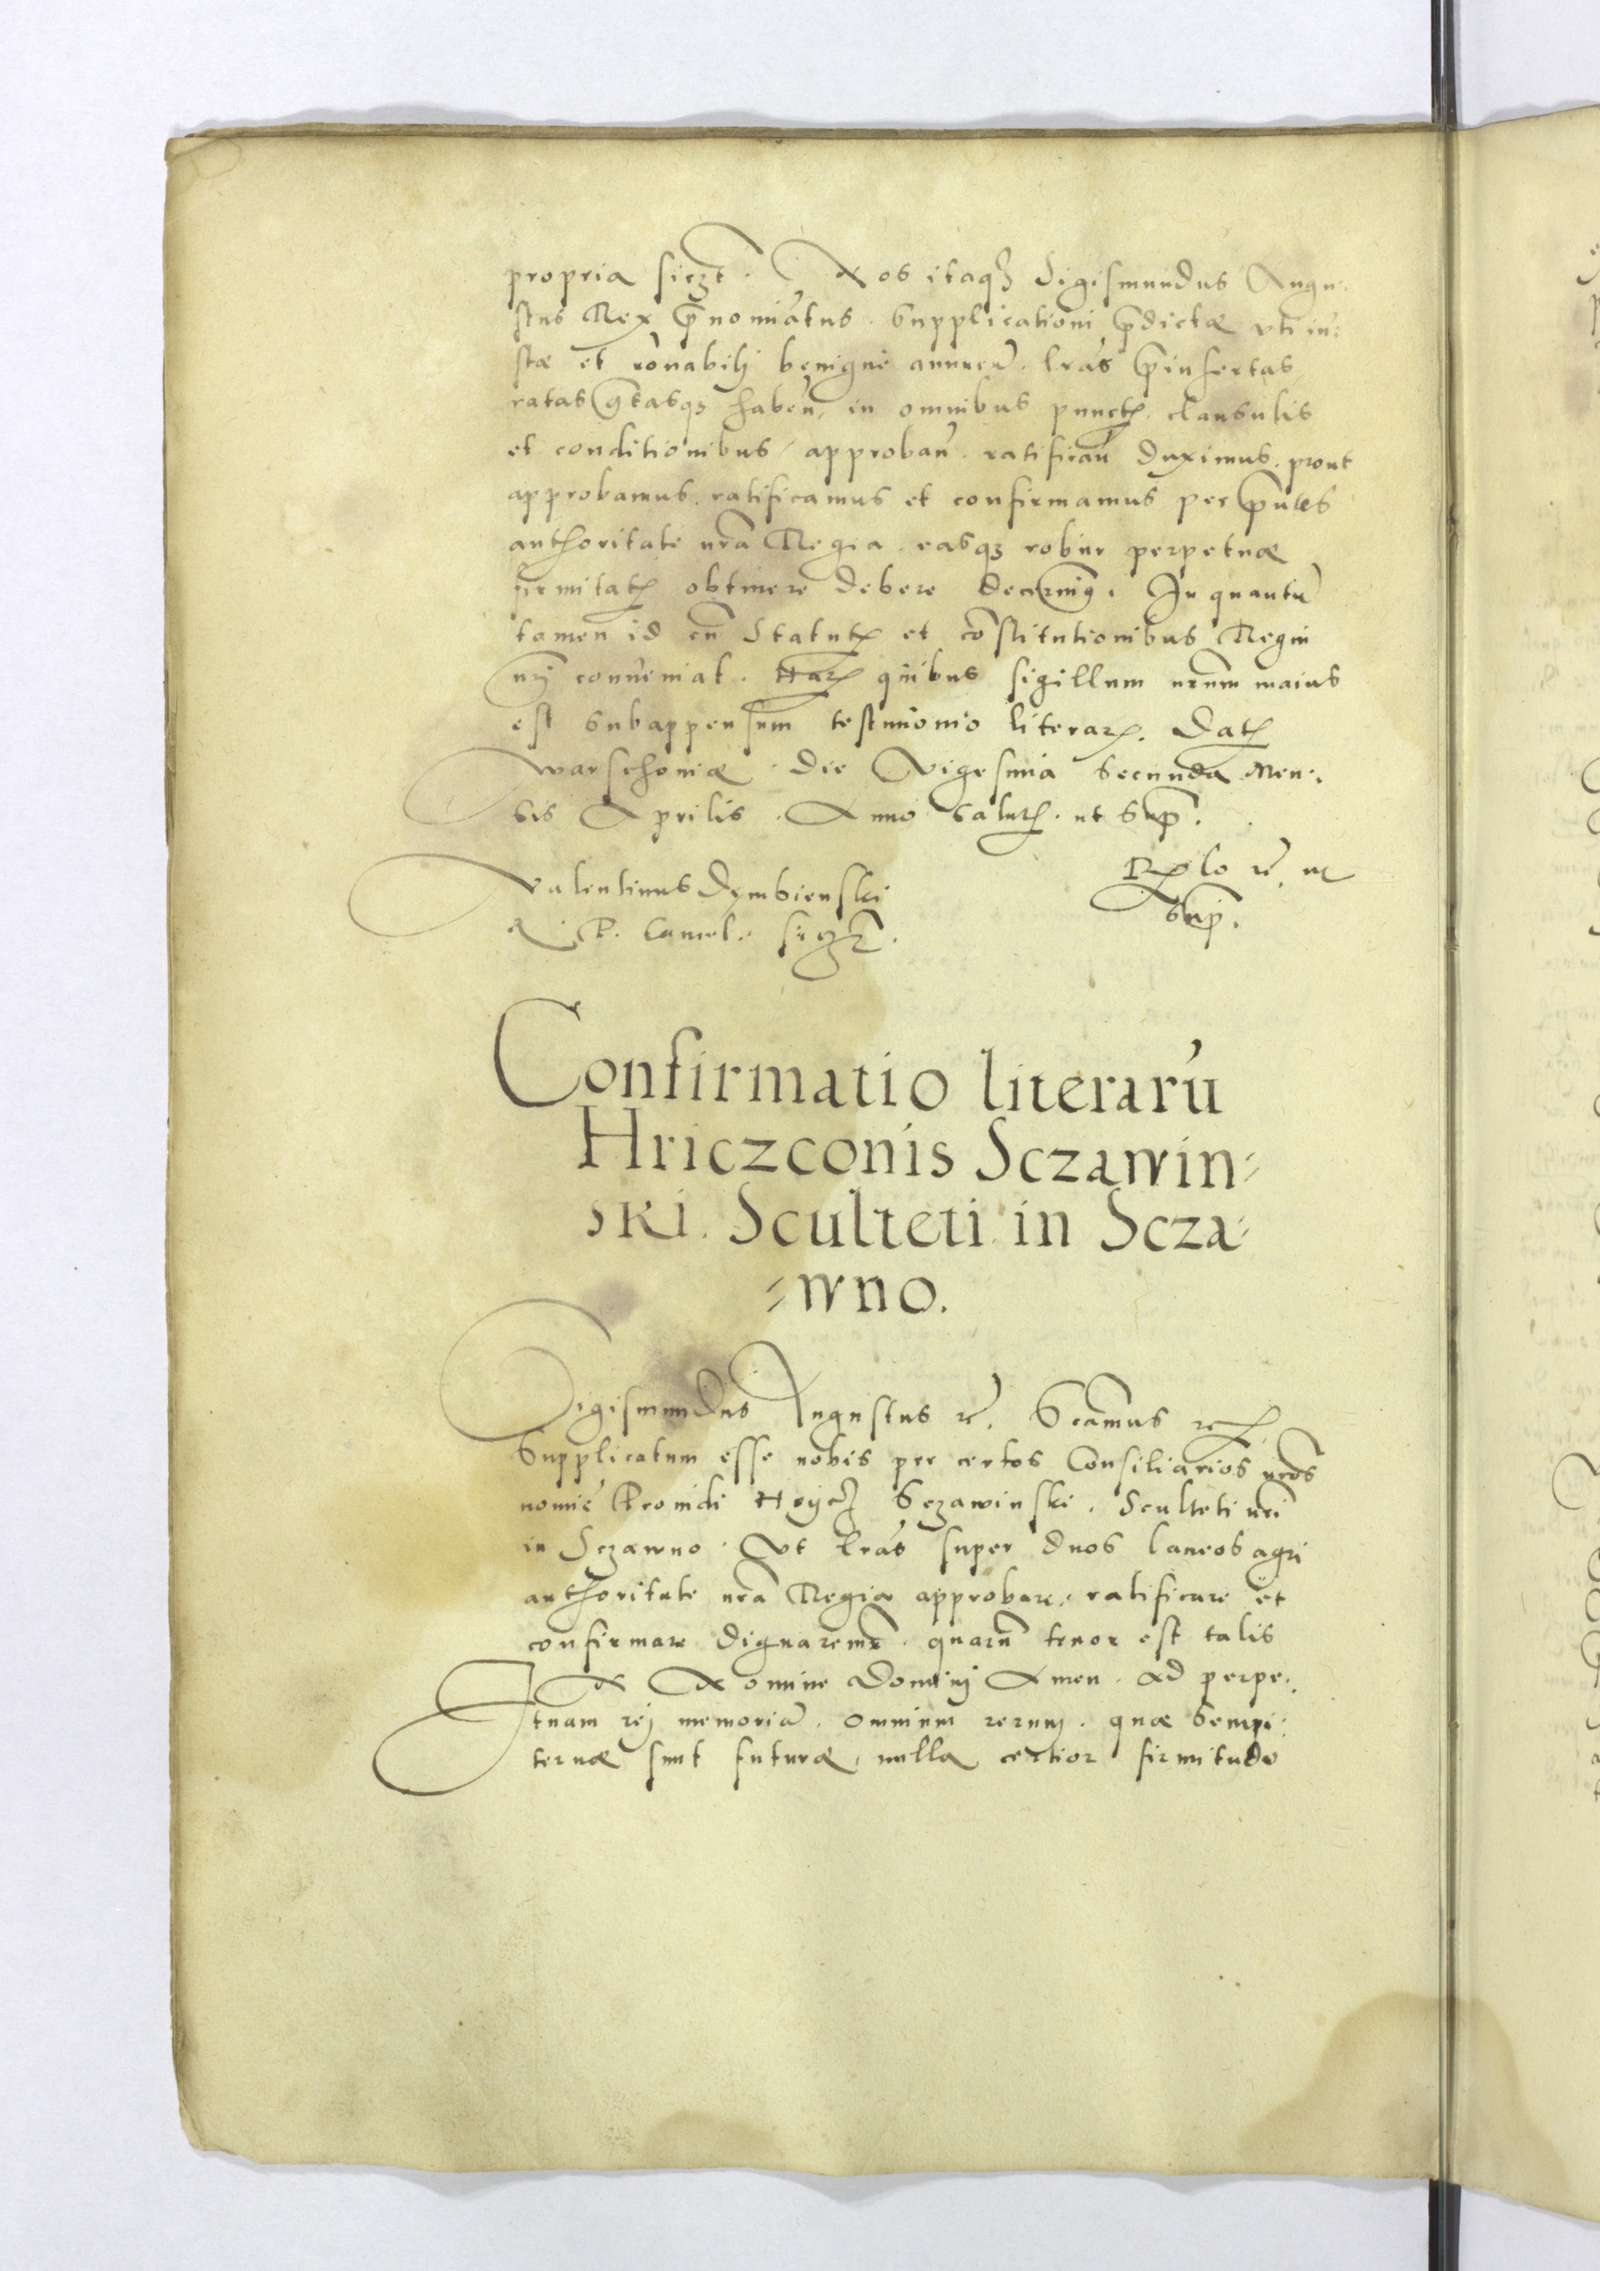 propria sbczt. Nos itaq3 Sigismundus Augu-
stus Rex pnomiatus. Supplicationi pdictæ vti iu:
stæ et ronabilj benigne annuen. lras pinsertas
ratas gtasq3 haben, in omnibus punct. clausulis
et conditionibus, approban. ratifican duximus. prout
approbamus. ratificamus et confirmamus per pntes
authoritate nra Regia. easq3 robur perpetuæ
firmitat obtinere debere decernim9. In quantu
tamen id cu Statut et costitutionibus Regni
nrj conveniat. Har quibus sigillum nrum maius
est subappensum testimonio literar. Dat
Warschoviæ. die Vigesima Secunda Men:
sis Aprilis. Anno salut. ut sup.
Valentinus Dymbienski
R. P. Cancel.
Rlo re. ut
sup.
Confirmatio literarú
Hriczconis Sczawin=
ski. Sculteti in Scza=
=wno.
Sigismundus Augustus re. S camus re
Supplicatum esse nobis per certos Consiliarios nros
nomie Providi Hrycz Sczawinski. Sculteti nri
in Sczawno. Vt lras super duos laneos agri
authoritate nra Regia approbare, ratificare et
confirmare dignaremr. quaru tenor est talis
IN Nomine Dominj Amen. Ad perpe:
tuam rej memoria. Omnium rerum. quæ sempi:
ternæ sunt futuræ, nulla certior firmitudo